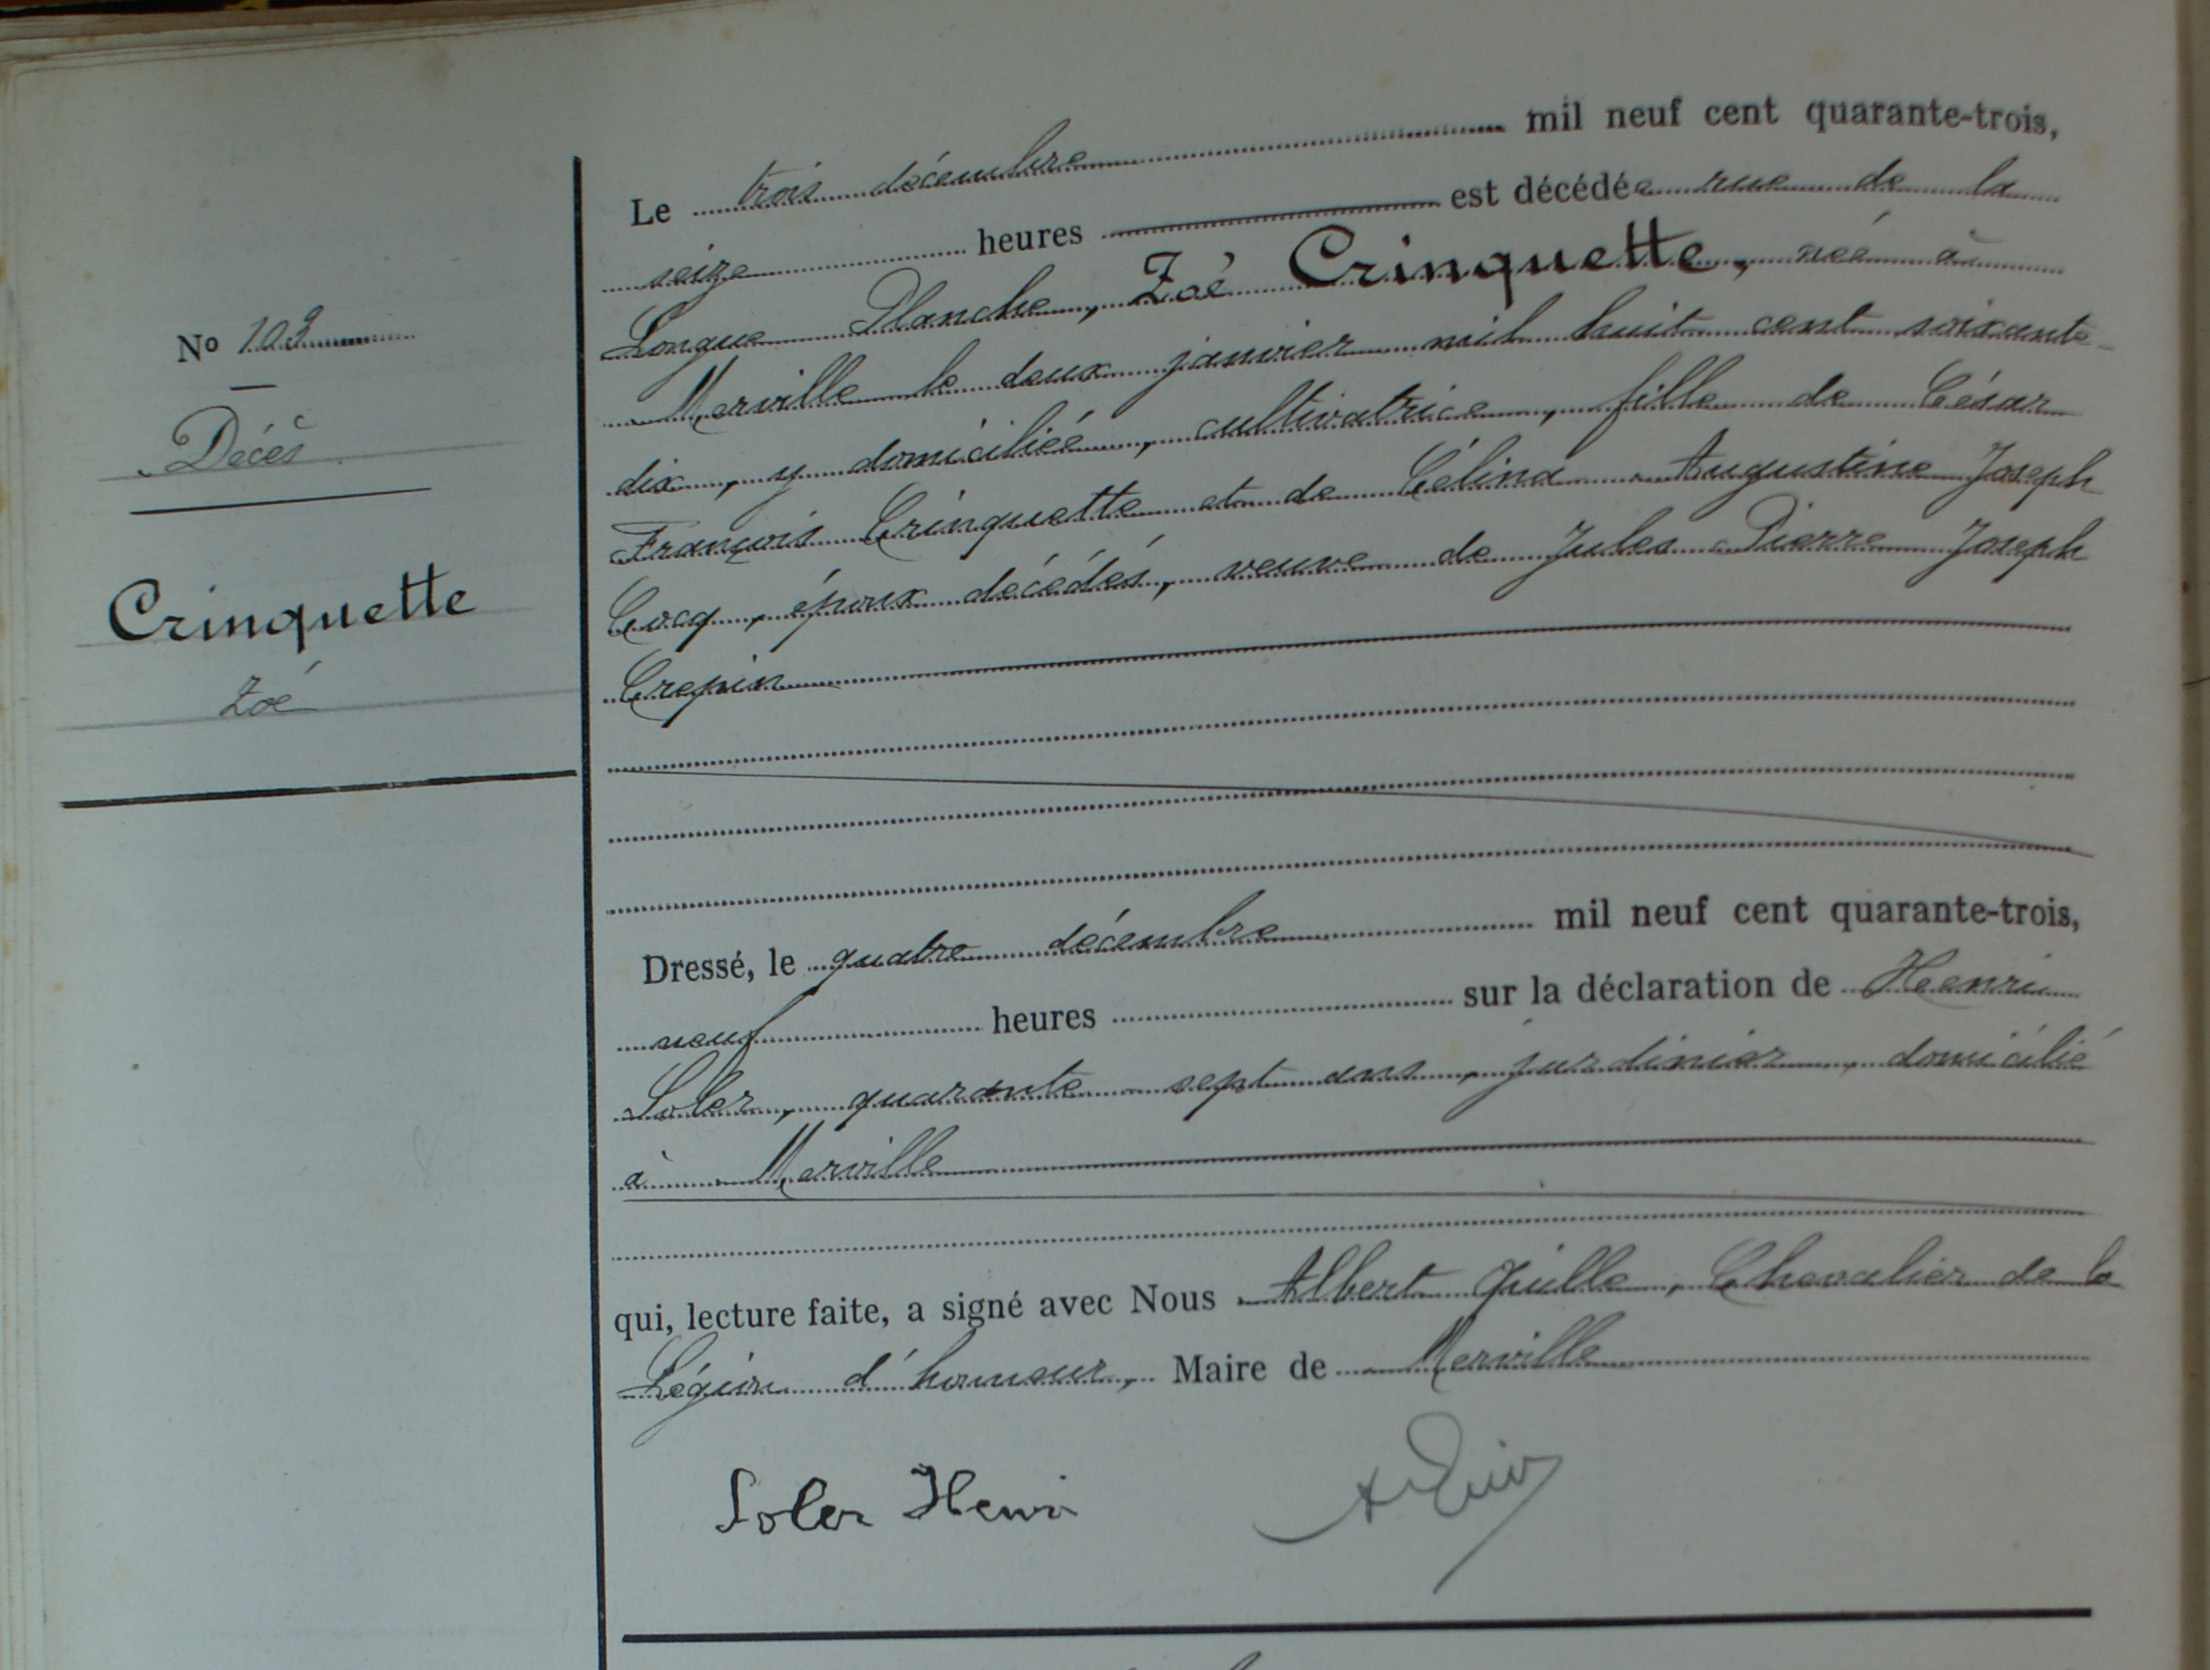 No 103
Décès
Crinquette
Zoé
Le trois décembre mil neuf cent quarante-trois,
seize heures est décédée rue de la
Longue Planche, Zoé Crinquette, née à
Merville le deux janvier mil huit cent soixante-
dix, y domiciliée, cultivatrice, fille de César
François Crinquette et de Célina Augustine Joseph
Cocq, époux décédés, veuve de Jules Pierre Joseph
Crepin
Dressé, le quatre décembre mil neuf cent quarante-trois,
neuf heures sur la déclaration de Henri
Soler, quarante sept ans, jardinier, domicilié
à Merville
qui, lecture faite, a signé avec Nous Albert Chevalier de la
Légion d'honneur, Maire de Merville
Soler Henri